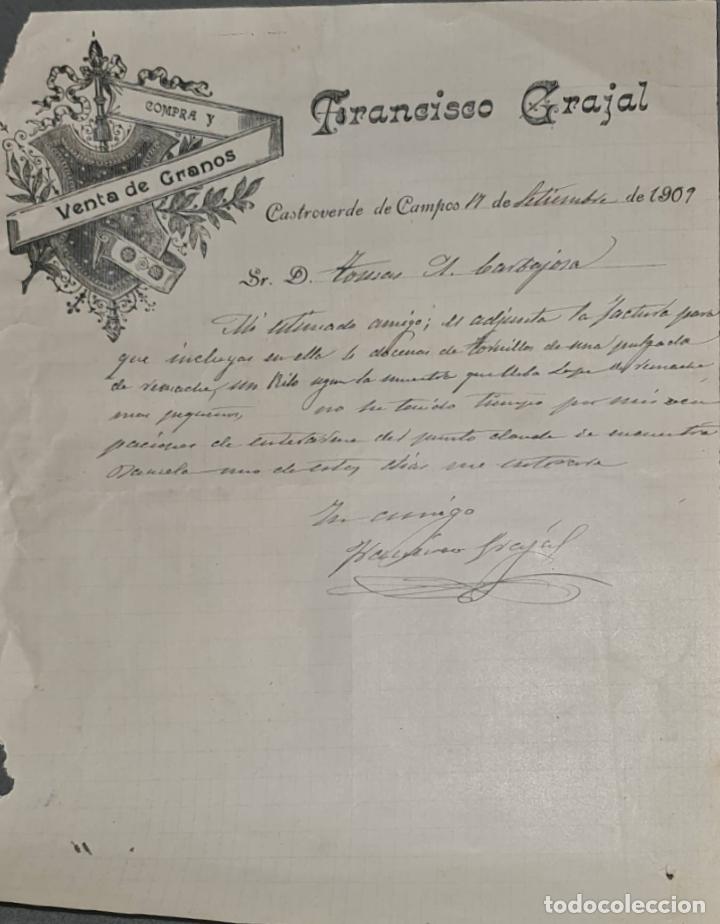 COMPRA Y
Venta de Granos
Francisco Grajal
Castroverde de Campos 17 de Setiembre de 1909
Sr. D. Tomas A. Carbajosa
Mi estimado amigo; es adjunta la factura para
que incluyas en ella 6 docenas de tornillos de una pulgada
de remache, un Kilo segun la muestra que de remache
mas pequeños, no he tenido tiempo por mis ocu
paciones de enterarme del punto donde se encuentra
uno de estos dias me enterare
Tu amigo
Francisco Grajal
todocoleccion
todocoleccion.net